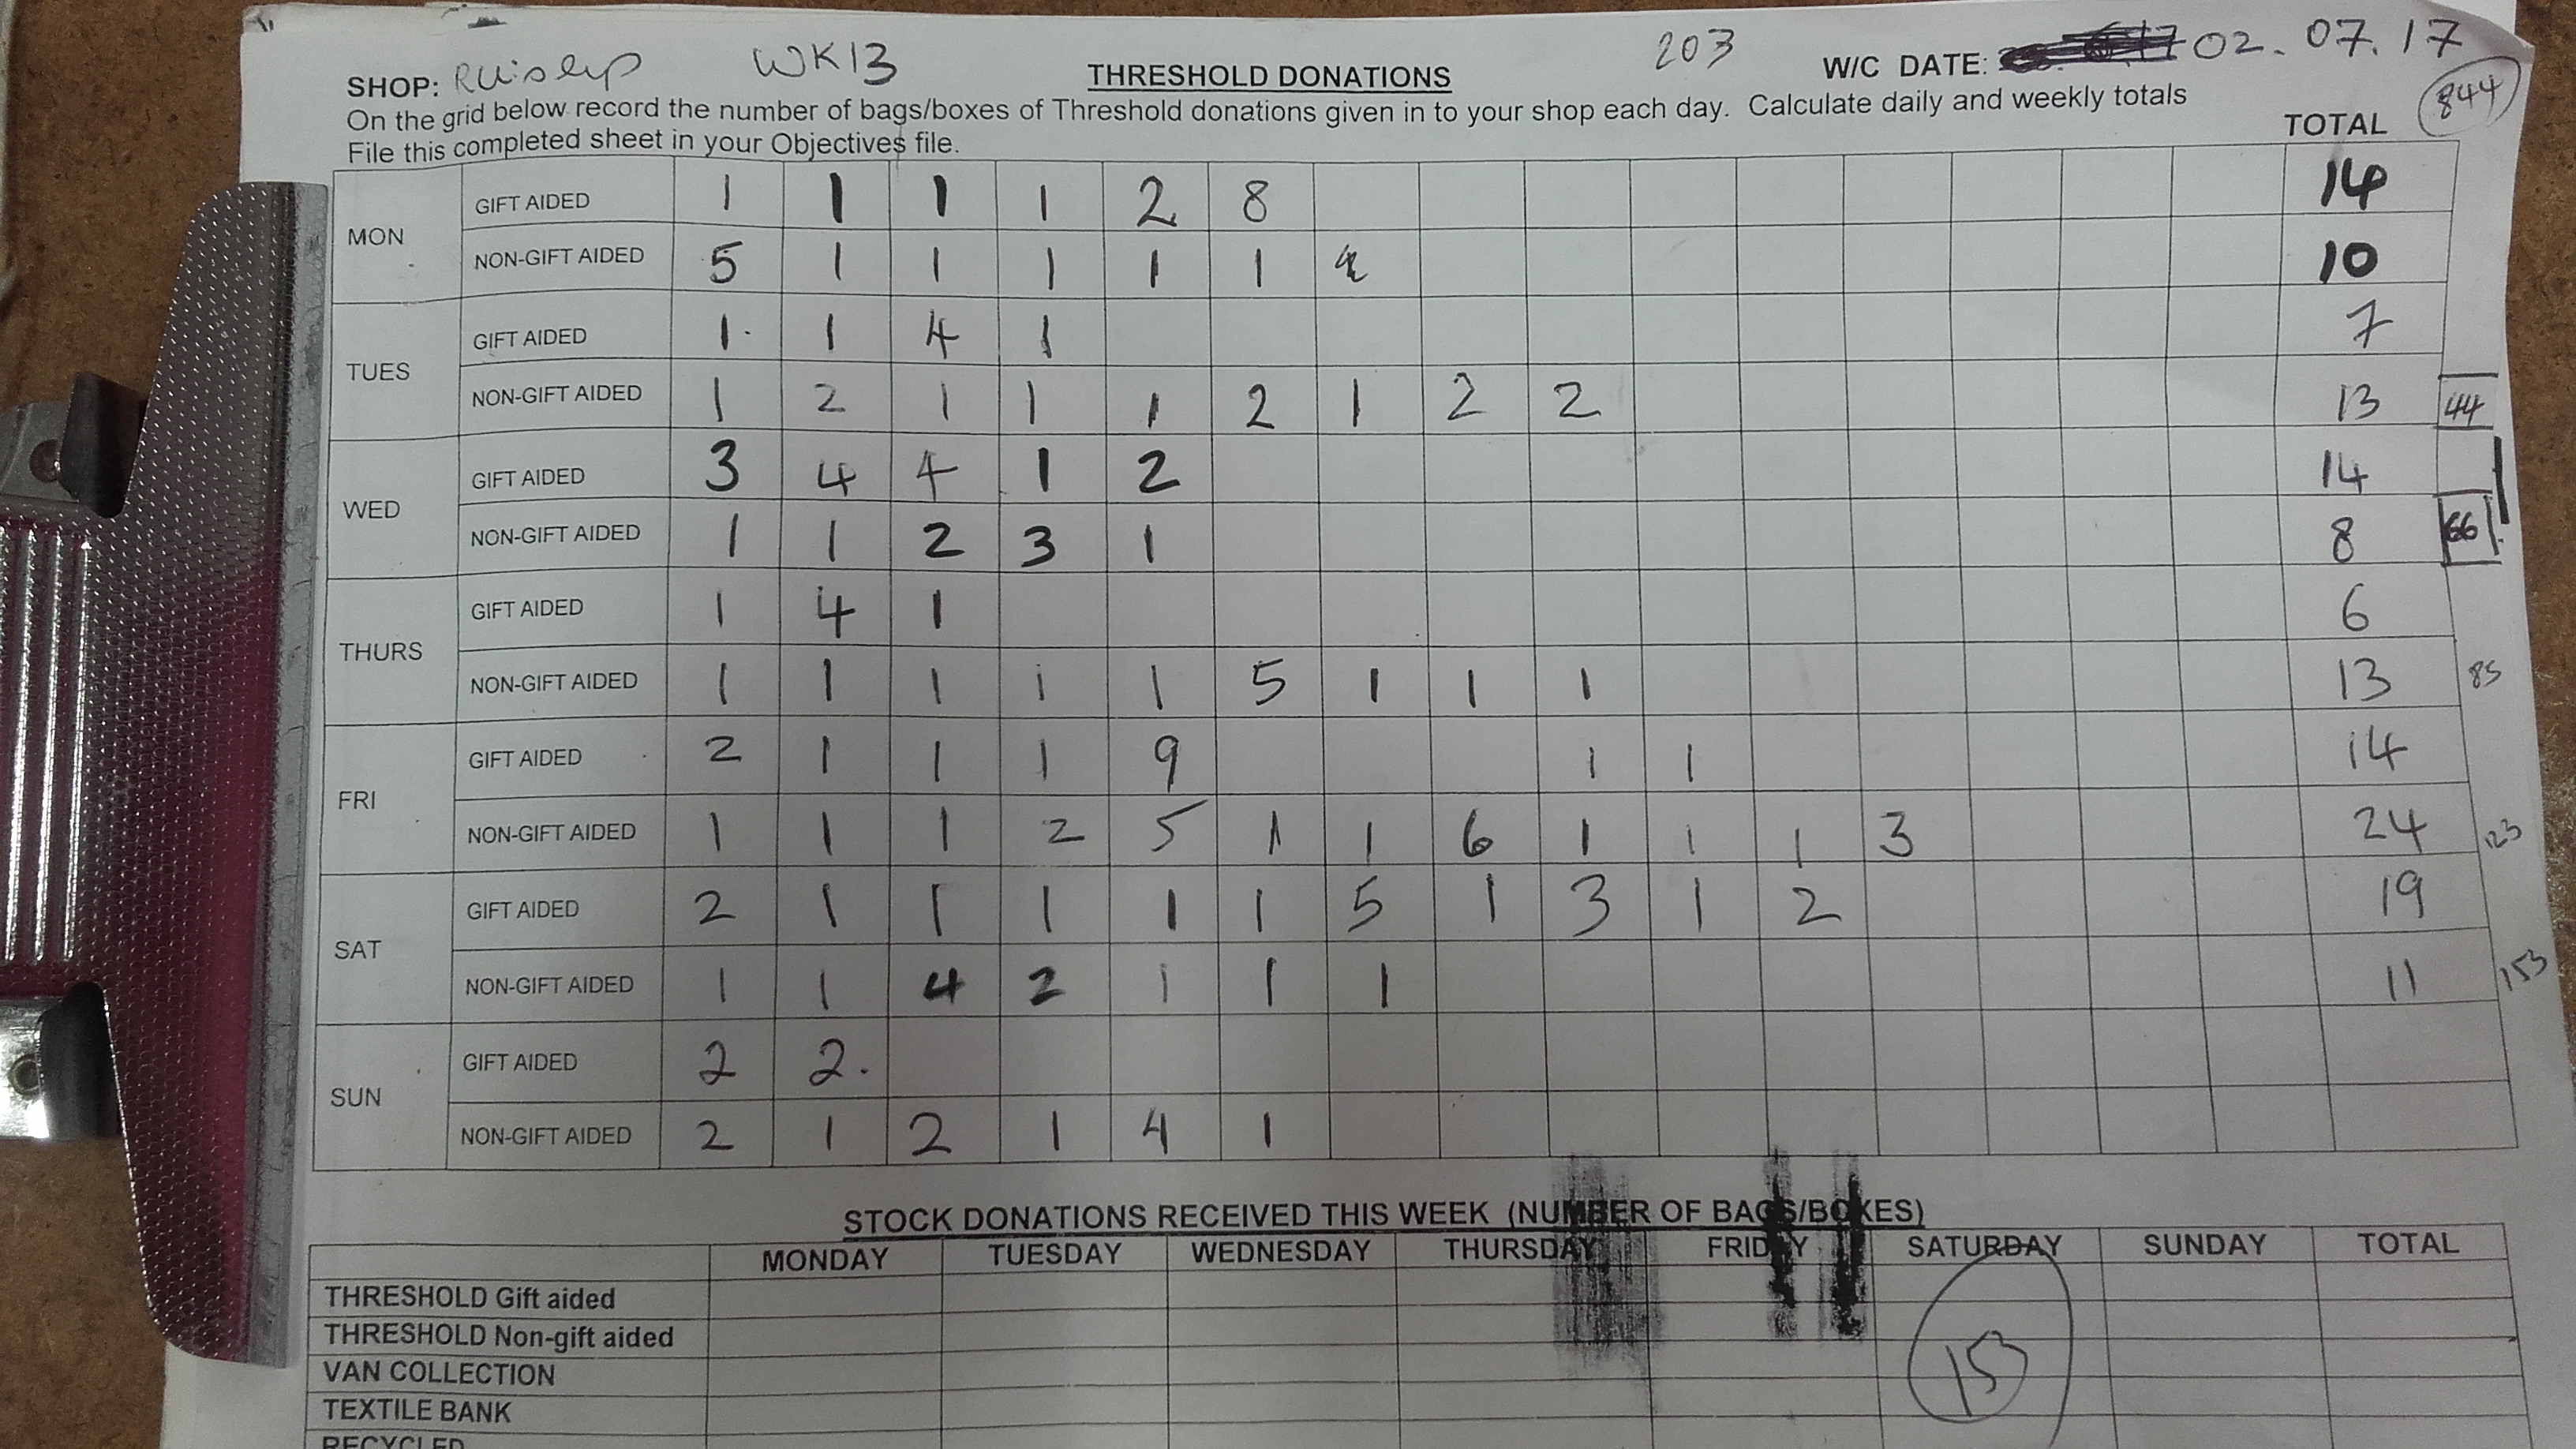 SHOP: Ruislip WK13 THRESHOLD DONATIONS 203 W/C DATE: 02.07.17
On the grid below record the number of bags/boxes of Threshold donations given in to your shop each day. Calculate daily and weekly totals
844
File this completed sheet in your Objectives file. TOTAL
MON GIFT AIDED 1 1 1 1 2 8 14
NON-GIFT AIDED 5 1 1 1 1 1 10
TUES GIFT AIDED 1. 1 4 1 7
NON-GIFT AIDED 1 2 1 1 1 2 1 2 2 13 44
WED GIFT AIDED 3 4 4 1 2 14
NON-GIFT AIDED 1 1 2 3 1 8 66
THURS GIFT AIDED 1 4 1 6
NON-GIFT AIDED 1 1 1 1 1 5 1 1 1 13 85
FRI GIFT AIDED 2 1 1 1 9 1 1 14
NON-GIFT AIDED 1 1 1 2 5 1 1 6 1 1 1 3 24 123
SAT GIFT AIDED 2 1 1 1 1 1 5 1 3 1 2 19
NON-GIFT AIDED 1 1 4 2 1 1 1 11 153
SUN GIFT AIDED 2 2.
NON-GIFT AIDED 2 1 2 1 4 1
STOCK DONATIONS RECEIVED THIS WEEK (NUMBER OF BAGS/BOXES)
MONDAY TUESDAY WEDNESDAY THURSDAY FRIDAY SATURDAY SUNDAY TOTAL
THRESHOLD Gift aided
THRESHOLD Non-gift aided
VAN COLLECTION
TEXTILE BANK
RECYCLED